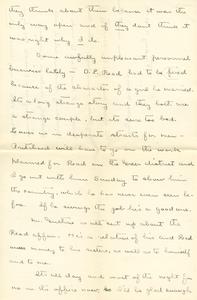 they think about them because it was the
only way open and if they don't think it
was right why I do.
Some awfully unpleasant personnel
business lately — D.P. Road had to be fired
because of the character of a girl he married.
Its a long strange story and they both are
a strange couple, but its sure too bad.
Leaves us in desperate straits for men.
will have to go on the work
planned for Road on the Green district and
I go out with him Sunday to show him
the country, which he has never even seen be-
fore. If he swings the job he's a good one.
Mr. is all set up about the
Road affair. He's a relative of his and Road
owes money to his sister, as well as to himself
and to me.
It's all day and most of the night for
me in the office now, & I'd be glad enough